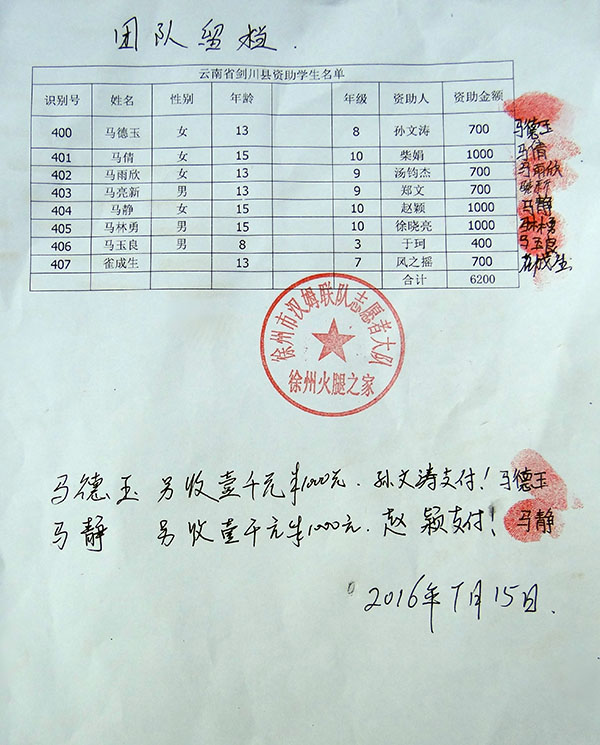 团队留档.
云南省剑川县资助学生名单
识别号 姓名 性别 年龄 年级 资助人 资助金额
400 马德玉 女 13 8 孙文涛 700 马德玉
401 马倩 女 15 10 柴娟 1000 马倩
402 马雨欣 女 13 9 汤钧杰 700 马雨欣
403 马亮新 男 13 9 郑文 700
404 马静 女 15 10 赵颖 1000 马静
405 马林勇 男 15 10 徐晓亮 1000 马林勇
406 马玉良 男 8 3 于珂 400 马玉良
407 雀成生 13 7 风之摇 700 雀成生
合计 6200
徐州市汉姆联队志愿者大队
徐州火腿之家
马德玉 另收壹千元半1000元. 孙文涛支付! 马德玉
马静 另收壹千元半1000元. 赵颖支付! 马静
2016年7月15日.